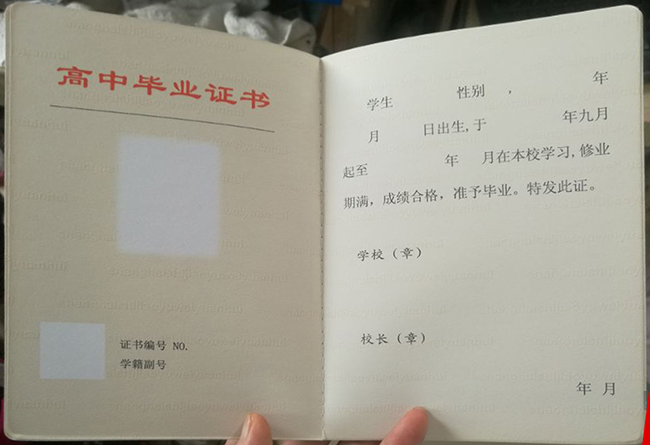 高中毕业证书
证书编号 NO.
学籍副号
学生 性别 , 年
月 日出生,于 年九月
起至 年 月在本校学习,修业
期满，成绩合格，准予毕业。特发此证。
学校（章）
校长（章）
年 月